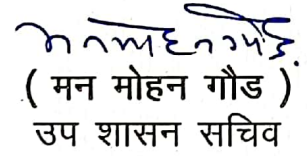 ( मन मोहन गौड )
उप शासन सचिव